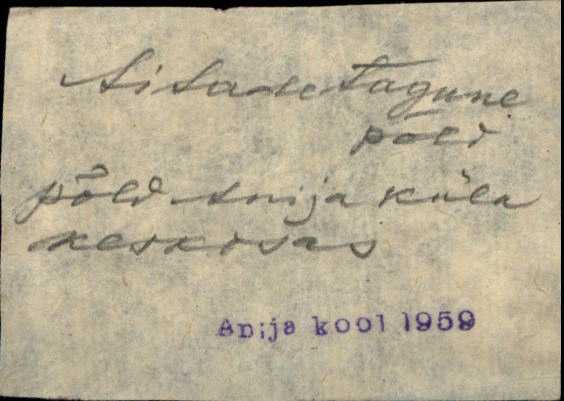 Aitade tagune
põld
põld Anija küla
keskosas
Anija kool 1959